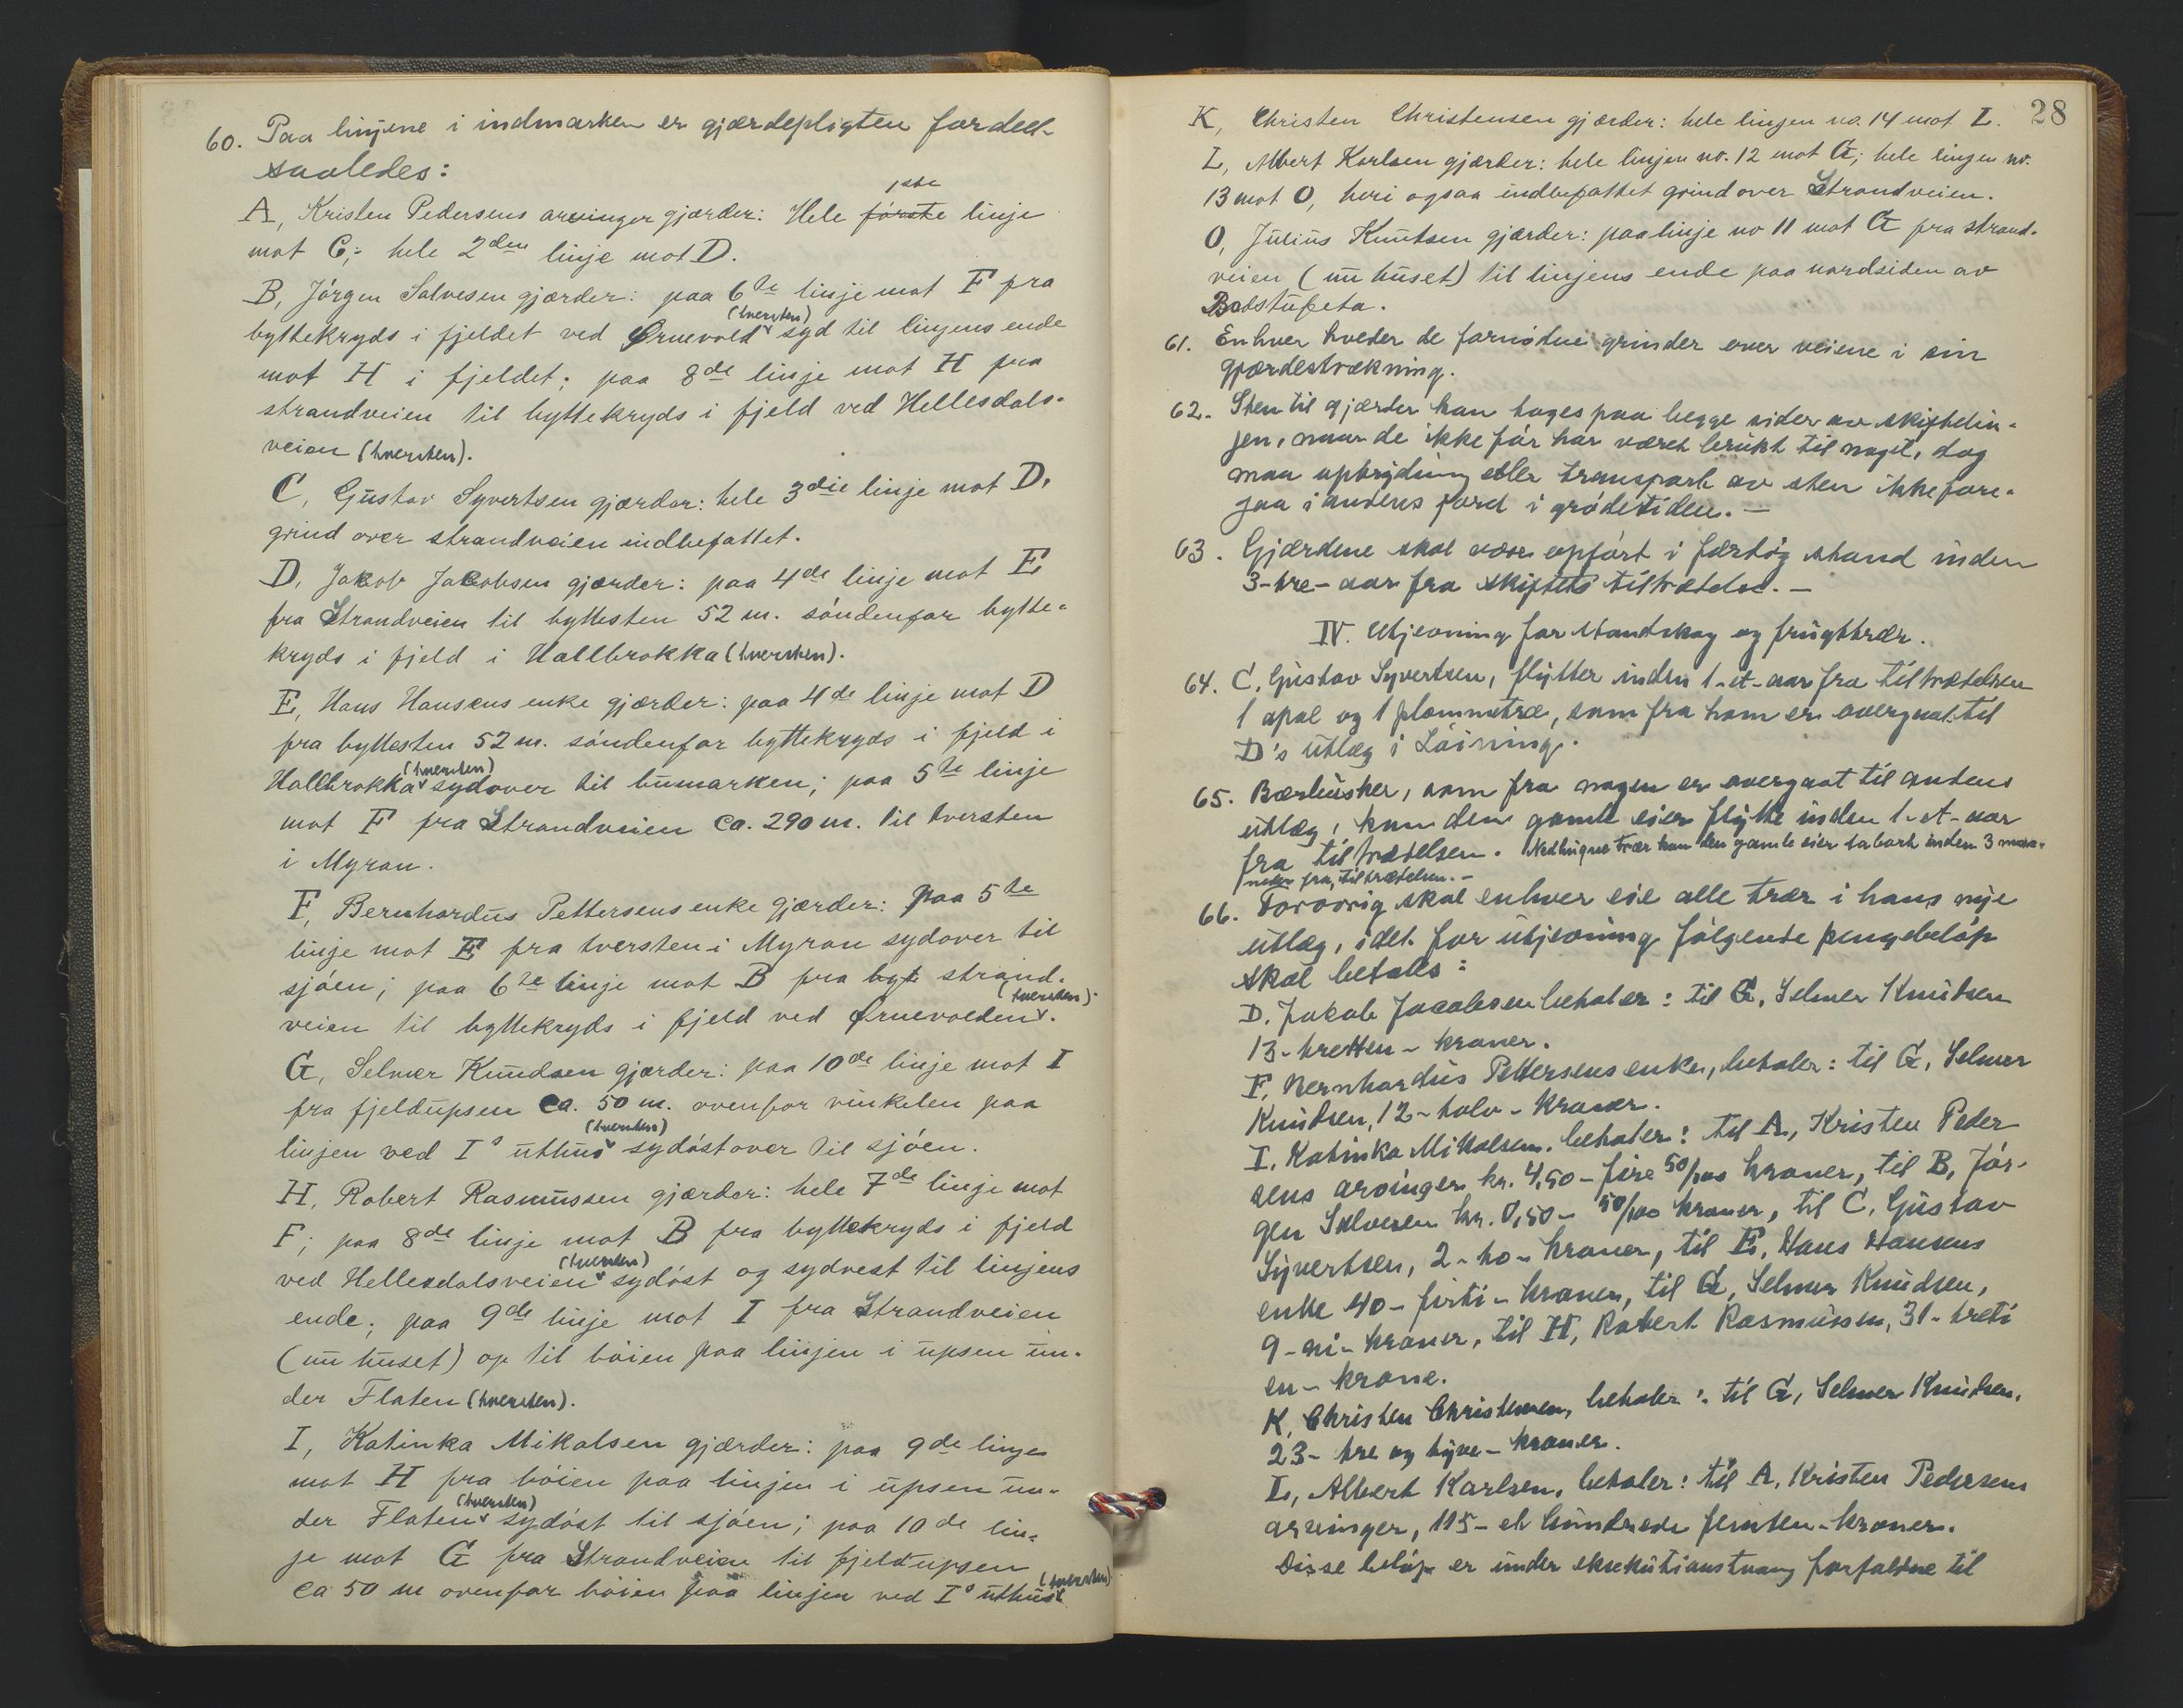 60. Paa linjene i indmarken er gjærdepligten fordelt
saaledes:
1ste
A, Kristen Pedersens arvinger gjærder: Hele første linje
mot C; hele 2den linje mot D.
B, Jörgen Salvesen gjærder: paa 6te linje mot F fra
(tversten)
byttekryds i fjeldet ved Ørnevold syd til linjens ende
mot H i fjeldet; paa 8de linje mot H fra
strandveien til byttekryds i fjeld ved Hellesdals-
veien (tversten).
C, Gustav Syvertsen gjærder: hele 3die linje mot D,
grind over strandveien indbefattet.
D, Jakob Jacobsen gjærder: paa 4de linje mot E
fra Strandveien til byttesten 52 m. söndenfor bytte-
kryds i fjeld i Hallbrokka (tversten).
E, Hans Hansens enke gjærder: paa 4de linje mot D
fra byttesten 52 m. söndenfor byttekryds i fjeld i
(tversten)
Hallbrokka sydover til bumarken; paa 5te linje
mot F fra Strandveien ca. 290 m. til tversten
i Myran.
F, Bernhardus Pettersens enke gjærder: Paa 5te
linje mot E fra tversten i Myran sydover til
sjöen; paa 6te linje mot B fra byt strand-
(tversten).
veien til byttekryds i fjeld ved Ørnevolden.
G, Selmer Knudsen gjærder: paa 10de linje mot I
fra fjeldupsen ca. 50 m. ovenfor vinkelen paa
(tversten)
linjen ved I's uthus sydöstover til sjöen.
H, Robert Rasmussen gjærder: hele 7de linje mot
F; paa 8de linje mot B fra byttekryds i fjeld
(tversten)
ved Hellesdalsveien sydöst og sydvest til linjens
ende; paa 9de linje mot I fra Strandveien
(uu huset) op til böien paa linjen i upsen un-
der Flaten (tversten).
I, Katinka Mikalsen gjærder: paa 9de linje
mot H fra böien paa linjen i upsen un-
(tversten)
der Flaten sydöst til sjöen; paa 10de lin-
je mot G fra Strandveien til fjeldupsen
(tversten)
ca 50 m ovenfor böien paa linjen ved I's uthus
28
K, Christen Christensen gjærder: hele linjen no. 14 mot L.
L, Albert Karlsen gjærder: hele linjen no. 12 mot G; hele linjen no.
13 mot O, heri ogsaa indbefattet grind over Strandveien.
O, Julius Knutsen gjærder: paa linje no 11 mot G fra strand-
veien (uu huset) til linjens ende paa nordsiden av
61. Enhver holder de fornödne grinder over veiene i sin
gjærdestrækning.
62. Sten til gjærder kan tages paa begge sider av skiftelin-
jen, naar de ikke för har været brukt til noget, dog
maa opbrydning eller transport av sten ikke fore-
gaa i andens jord i grödetiden. -
63. Gjærdene skal være opfört i færdig stand inden
3-tre-aar fra skiftets tiltrædelse. -
IV. Utjevning for standskog og frugttrær.
64. C, Gustav Syvertsen, flytter inden 1-et-aar fra tiltrædelsen
1 apal og 1 plommetræ, som fra ham er overgaat til
D's utlæg i Löining.
65. Bærbusker, som fra nogen er overgaat til andens
utlæg, kan den gamle eier flytte inden 1-et-aar
fra tiltrædelsen. Nedhugne trær kan den gamle eier ta bort inden 3 maa-
neder fra tiltrædelsen. -
66. Forovrig skal enhver eie alle trær i hans nye
utlæg, idet for utjevning fölgende pengebelöp
skal betales:
D. Jakob Jacobsen betaler: til G, Selmer Knudsen
13-tretten-kroner.
F, Bernhardus Pettersens enke, betaler: til G, Selmer
Knudsen, 12-tolv-kroner.
I, Katinka Mikalsen, betaler: til A, Kristen Peder
sens arvinger kr. 4,50-fire 50/100 kroner, til B, Jör-
gen Salvesen kr. 0,50- 50/100 kroner, til C, Gustav
Syvertsen, 2-to-kroner, til E, Hans Hansens
enke 40-firti-kroner, til G, Selmer Knudsen,
9-ni-kroner, til H, Robert Rasmussen, 31-treti
en-krone.
K, Christen Christensen, betaler: til G, Selmer Knudsen,
23-tre og tyve-kroner.
L, Albert Karlsen, betaler: til A, Kristen Pedersens
arvinger, 115-et hundrede femten-kroner.
Disse belöp er under eksekutionstvang forfaldne til